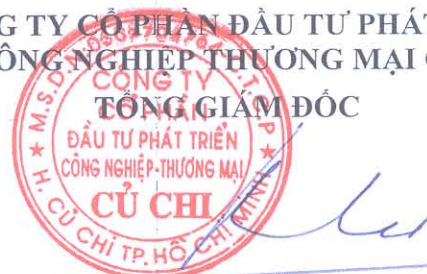 G TY CỔ PHẦN ĐẦU TƯ PHÁT
ÔNG NGHIỆP THƯƠNG MẠI
TỔNG GIÁM ĐỐC
CÔNG TY
CỔ PHẦN
ĐẦU TƯ PHÁT TRIỂN
CÔNG NGHIỆP-THƯƠNG MẠI
CỦ CHI
H. CỦ CHI TP. HỒ CHÍ MINH